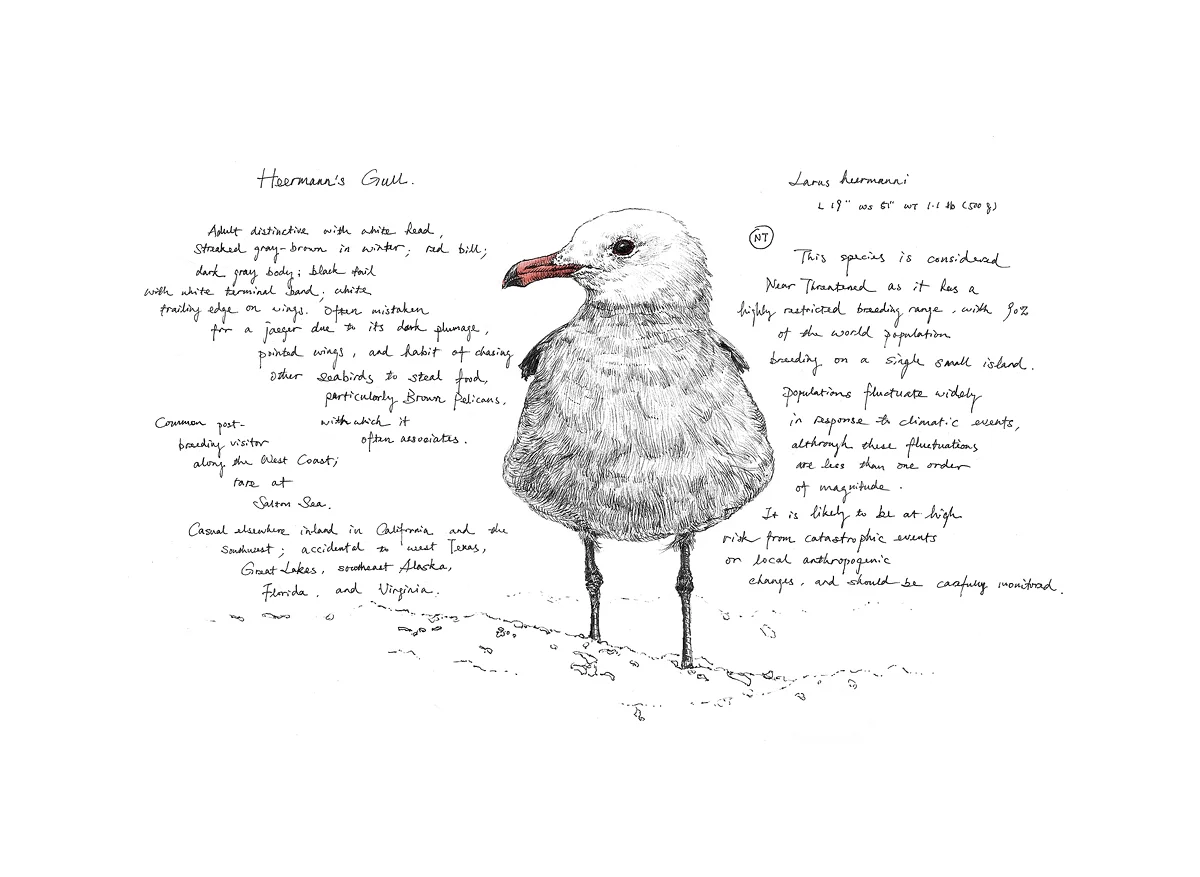 Heermann's Gull.
Adult distinctive with white head,
streaked gray-brown in winter; red bill;
dark gray body; black tail
with white terminal band; white
trailing edge on wings. Often mistaken
for a jaeger due to its dark plumage,
pointed wings, and habit of chasing
other seabirds to steal food,
particularly Brown Pelicans,
with which it
often associates.
Common post-
breeding visitor
along the West Coast;
rare at
Salton Sea.
Casual elsewhere inland in California and the
Southwest; accidental to west Texas,
Great Lakes, southeast Alaska,
Florida, and Virginia.
Larus heermanni
L 19" WS 51" WT 1.1 lb (500 g)
NT
This species is considered
Near Threatened as it has a
highly restricted breeding range, with 90%
of the world population
breeding on a single small island.
Populations fluctuate widely
in response to climatic events,
although these fluctuations
are less than one order
of magnitude.
It is likely to be at high
risk from catastrophic events
or local anthropogenic
changes, and should be carefully monitored.